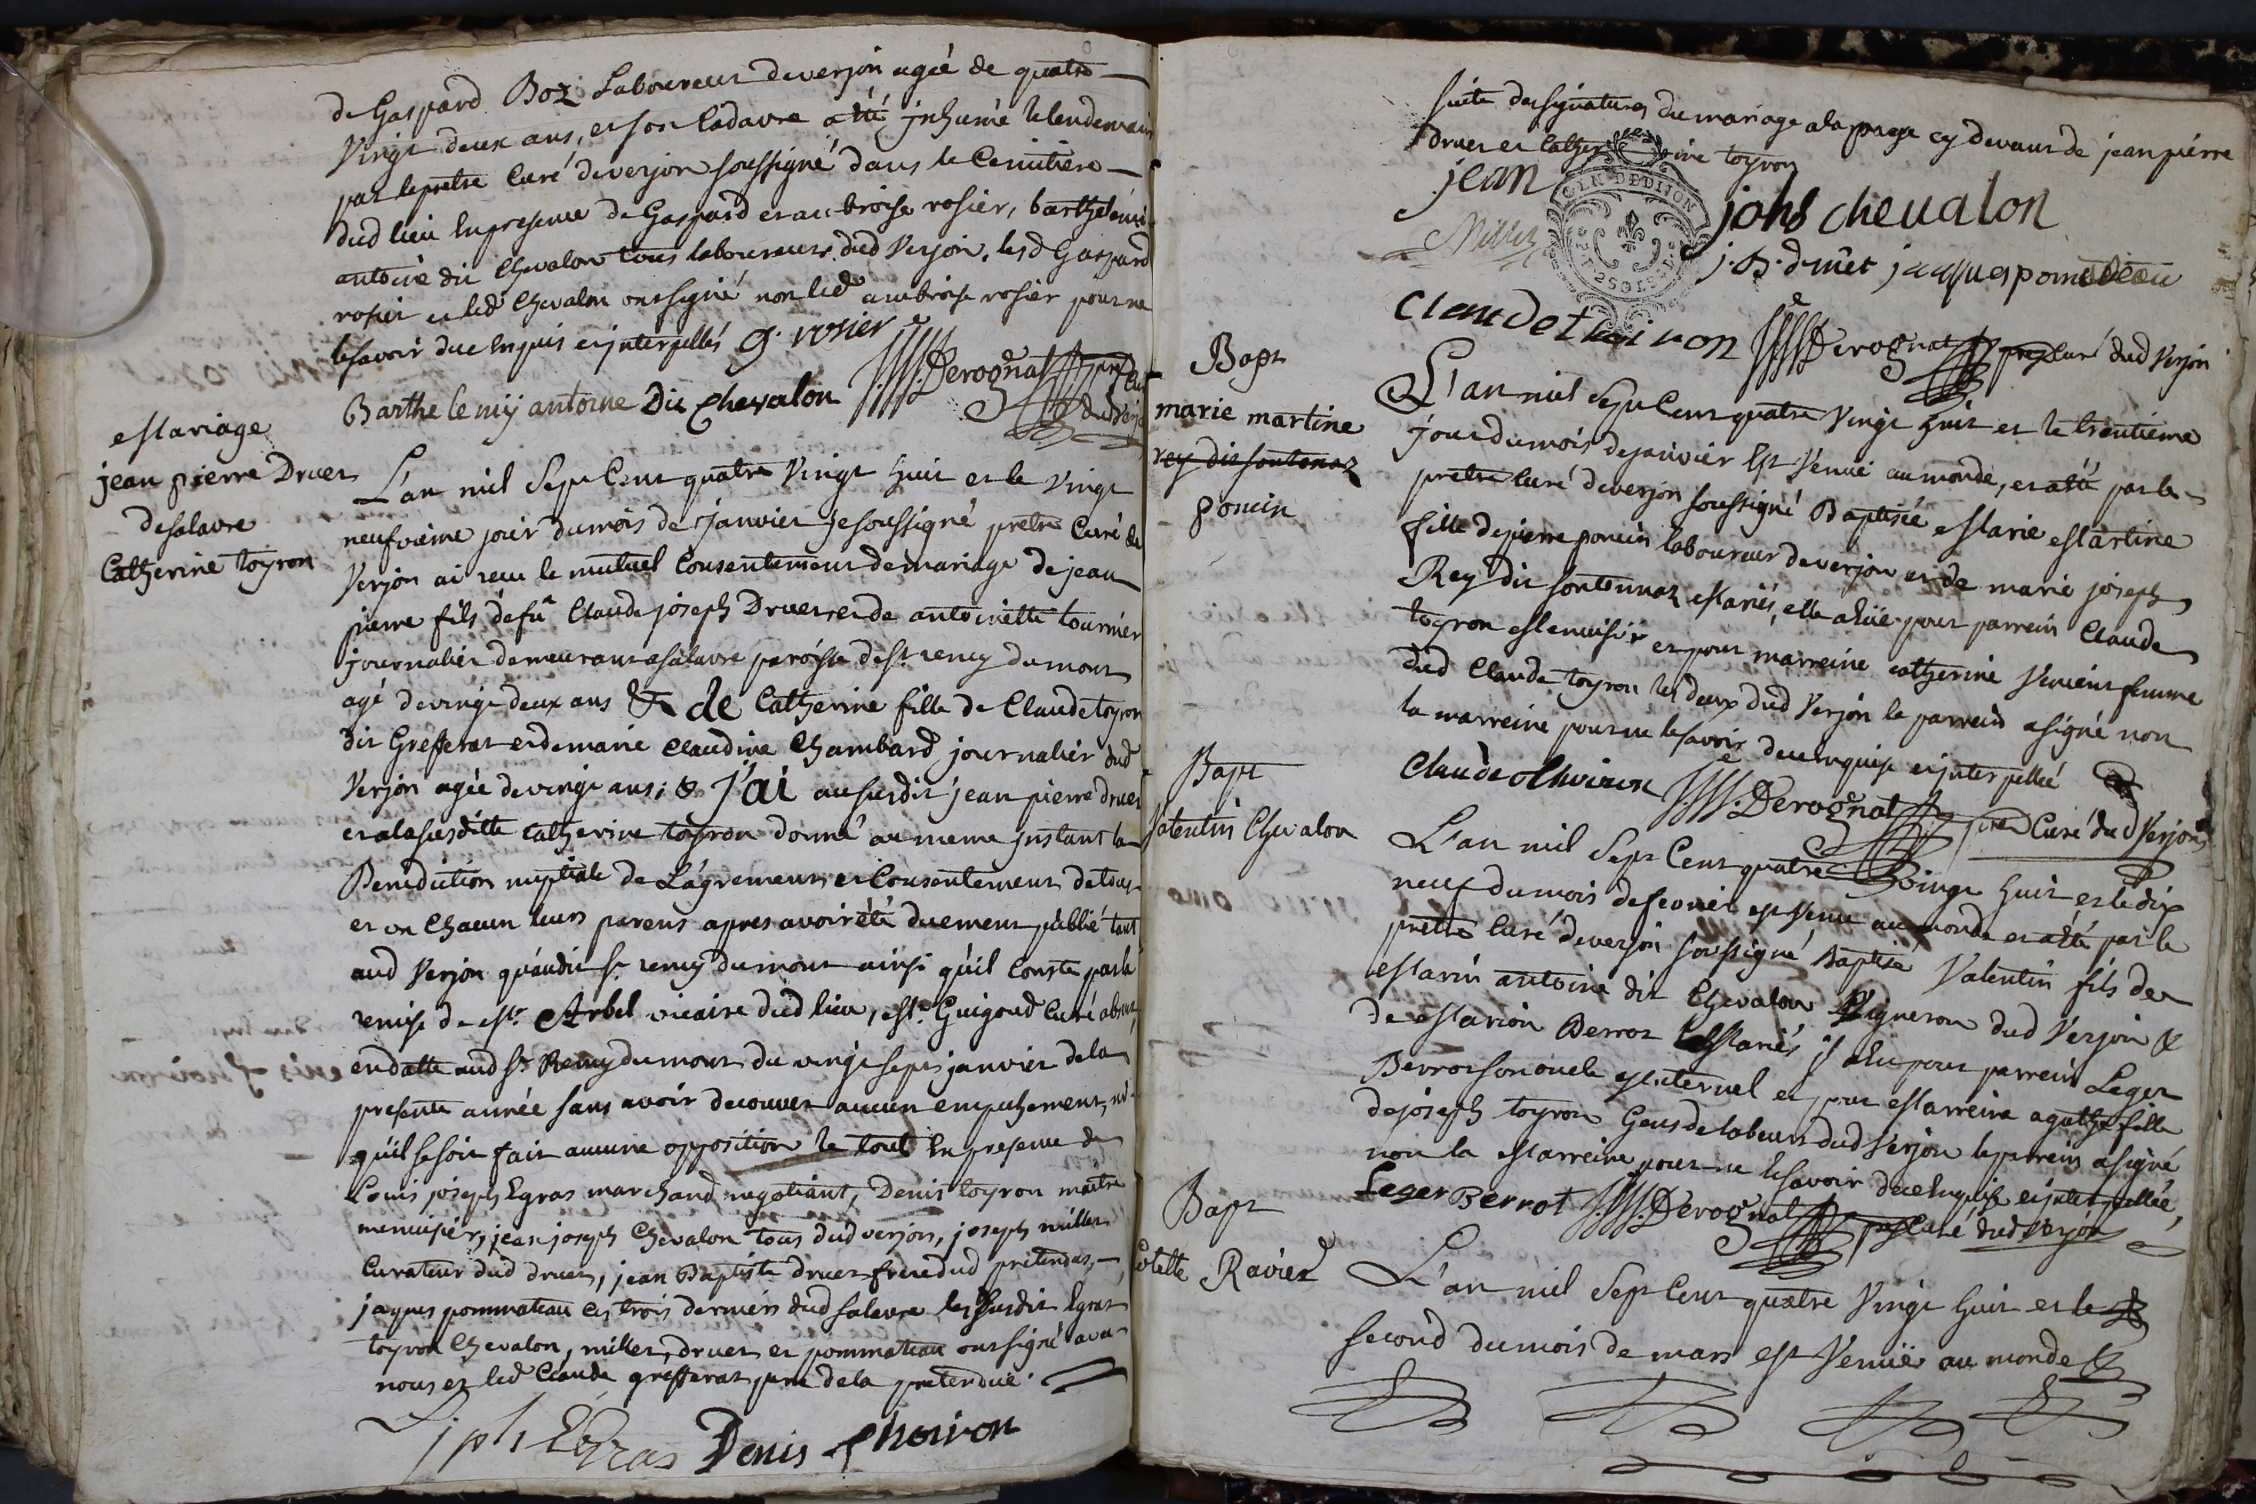 de Gaspard Boz Laboureur de verjon agée de quatre
Vingt deux ans, et son Cadavre a été jnhumé le lendemain
par le pretre Curé de verjon soussigné dans le Cemitiere
dud lieu En presence de Gaspard et ambroise rosier, barthelemi
antoine dit Chevalon tous laboureurs dud Verjon, lesd Gaspard
rosier et led Chevalon ont signé non led ambroise rosier pour ne
le savoir due Enquis et jnterpellés g. rosier
Barthelemÿ antoine Dit Chevalon Derognat
Mariage
jean pierre Druet
de salavre
Catherine toyron
L'an mil Sept Cent quatre Vingt huit et le vingt
neufvieme jour du mois de Janvier je soussigné pretre Curé de
Verjon ai recu le mutuel Consentement de mariage de jean
pierre fils de fû Claude joseph Druet et de antoinette tournier
journalier demeurant a salavre paroisse de St remy du mont
agé de vingt deux ans & de Catherine fille de Claude toyron
dit Grefferat et de marie Claudine Chambard journalier dud
Verjon agée de vingt ans; & j'ai au susdit jean pierre druet
et a la susditte Catherine toyron donné au meme jnstant la
Benediction nuptiale de L'agrement et Consentement de tous
et un Chacun leurs parens apres avoir été duement publié tant
aud Verjon qu'audit St remy du mont ainsi qu'il Conste par la
remise de Mr Arbel vicaire dud lieu, Mr Guigoud Curé absent,
en datte aud St Remy du mont du vingt sept janvier de la
presente année sans avoir decouvert aucun empechement, ni
qu'il se soit fait aucune opposition le tout En presence de
Louis joseph Egras marchand negotiant, Denis toyron maitre
menuisier, jean joseph Chevalon tous dud verjon, joseph millet
Curateur dud druet, jean Baptiste druet frere dud pretendus,
jaques pommateau ces trois derniers dud salavre les susdit Egras
toyron Chevalon, millet, druet et pommateau ont signé avec
nous et led Claude grefferat pere de la pretendüe.
Egras Denis thoiron
suite des signatures du mariage a la page cy devant de jean pierre
druet et Catherine toyron
jean johs chevalon
Millet
j. B. druet jacques pomateau
Claude thoiron Derognat pretre Curé dud Verjon
Bapt
marie martine
rey dit sontonaz
poncin
L'an mil Sept Cent quatre Vingt huit et le trentieme
jour du mois de janvier Est Venuë au monde, et a été par le
pretre Curé de verjon soussigné Baptisée Marie Martine
fille de pierre poncin laboureur de verjon et de marie joseph
Rey dit sontonnaz Mariés, elle a hüe pour parrein Claude
toyron Menuisier et pour marreine catherine Venient femme
dud Claude toyron les deux dud Verjon le parrein a signé non
la marreine pour ne le savoir due enquise et jnterpellée
Claude thoiron Derognat pretre Curé dud Verjon
Bapt
Valentin Chevalon
L'an mil Sept Cent quatre Vingt huit et le dix
neuf du mois de fevrier est Venu au monde et a été par le
pretre Curé de verjon soussigné Baptisé Valentin fils de
Marin antoine dit Chevalon Vigneron dud Verjon &
de Marion Berrot Mariés jl a hu pour parrein Leger
Berrot son oncle Maternel et pour Marreine agathe fille
de joseph toyron Gens de labeur dud Verjon le parrein a signé
non la Marreine pour ne le savoir due Enquise et jnterpellée,
Leger Berrot Derognat pretre Curé dud Verjon
Bapt
Colette Ravier
L'an mil Sept Cent quatre Vingt huit et le
second du mois de mars est Venuë au monde